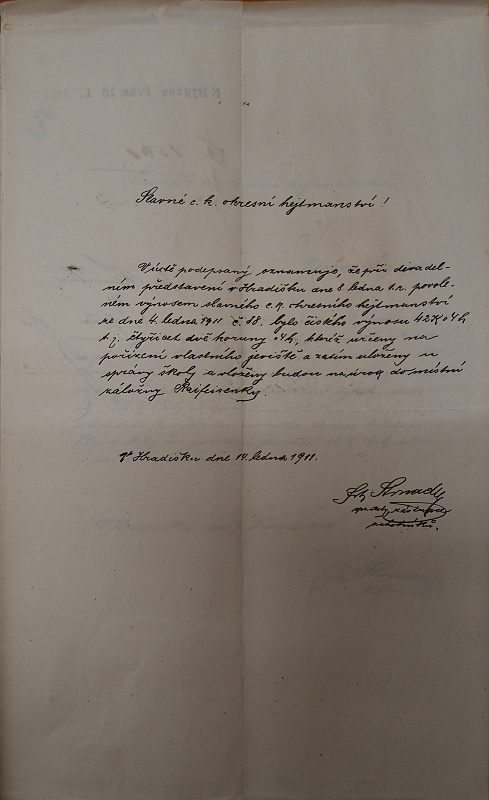 Slavné c. k. okresní hejtmanství!
V úctě podepsaný oznamuje, že při divadel-
ním představení v Hradišku dne 8. ledna t.r. povole-
ném výnosem slavného c. k. okresního hejtmanství
ze dne 4. ledna 1911 č. 88. bylo čistého výnosu 42 K 04 h
t. j. čtyřicet dvě koruny 04 h, kteréž určeny na
pořízení vlastního jeviště a zatím uloženy u
správy školy a vloženy budou na úrok do místní
záložny Raifeisenky.
V Hradišku dne 14. ledna 1911.